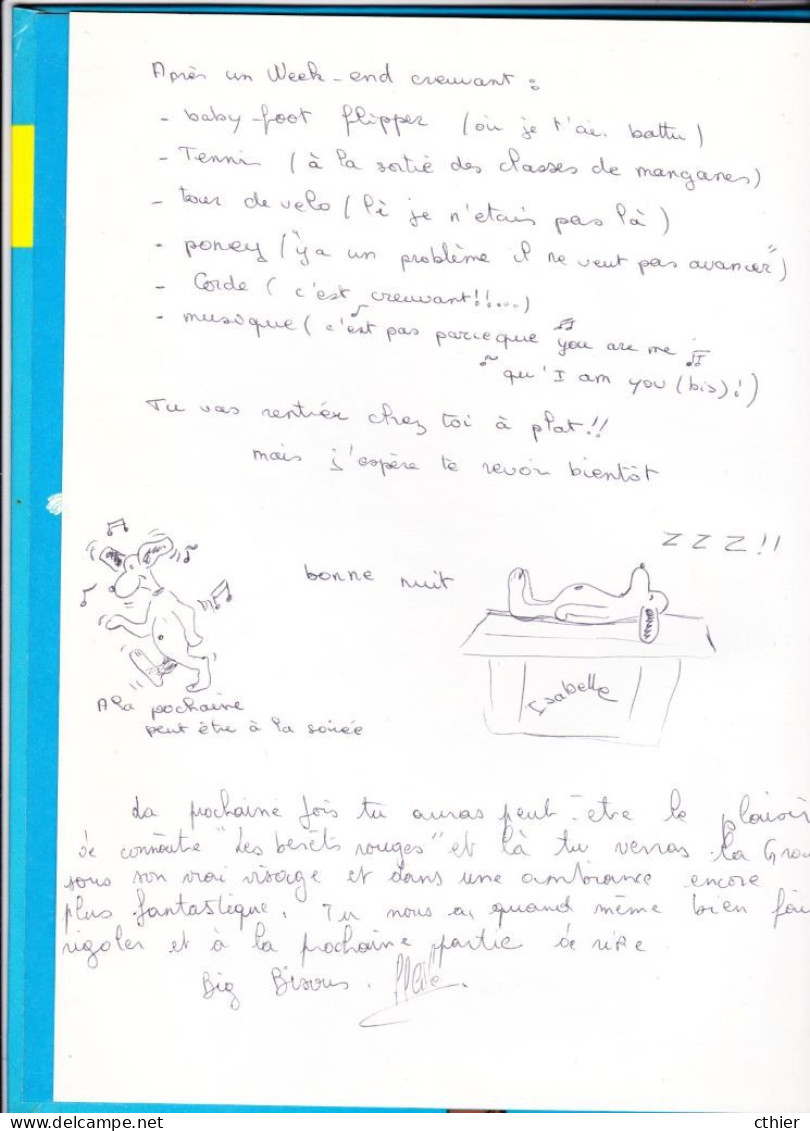 Après un Week-end creuvant :
- baby-foot flipper (où je t'ai battu)
- Tennis (à la sortie des classes de manganes)
- tour de velo (là je n'étais pas là)
- poney ("ya un problème il ne veut pas avancer")
- Corde (c'est creuvant!!...)
- musique (c'est pas parceque you are me
qu'I am you (bis)!)
Tu vas rentrer chez toi à plat!!
mais j'espère te revoir bientôt
ZZZ!!
bonne nuit
Isabelle
A la pochaine
peut être à la soirée
La pochaine fois tu auras peut-être le plaisir
de connaitre "Les berêts rouges" et là tu verras la Grou
sous son vrai visage et dans une ambiance encore
plus fantastique. Tu nous a quand même bien fai
rigoler et à la prochaine partie de rire
Big Bisous.
cthier